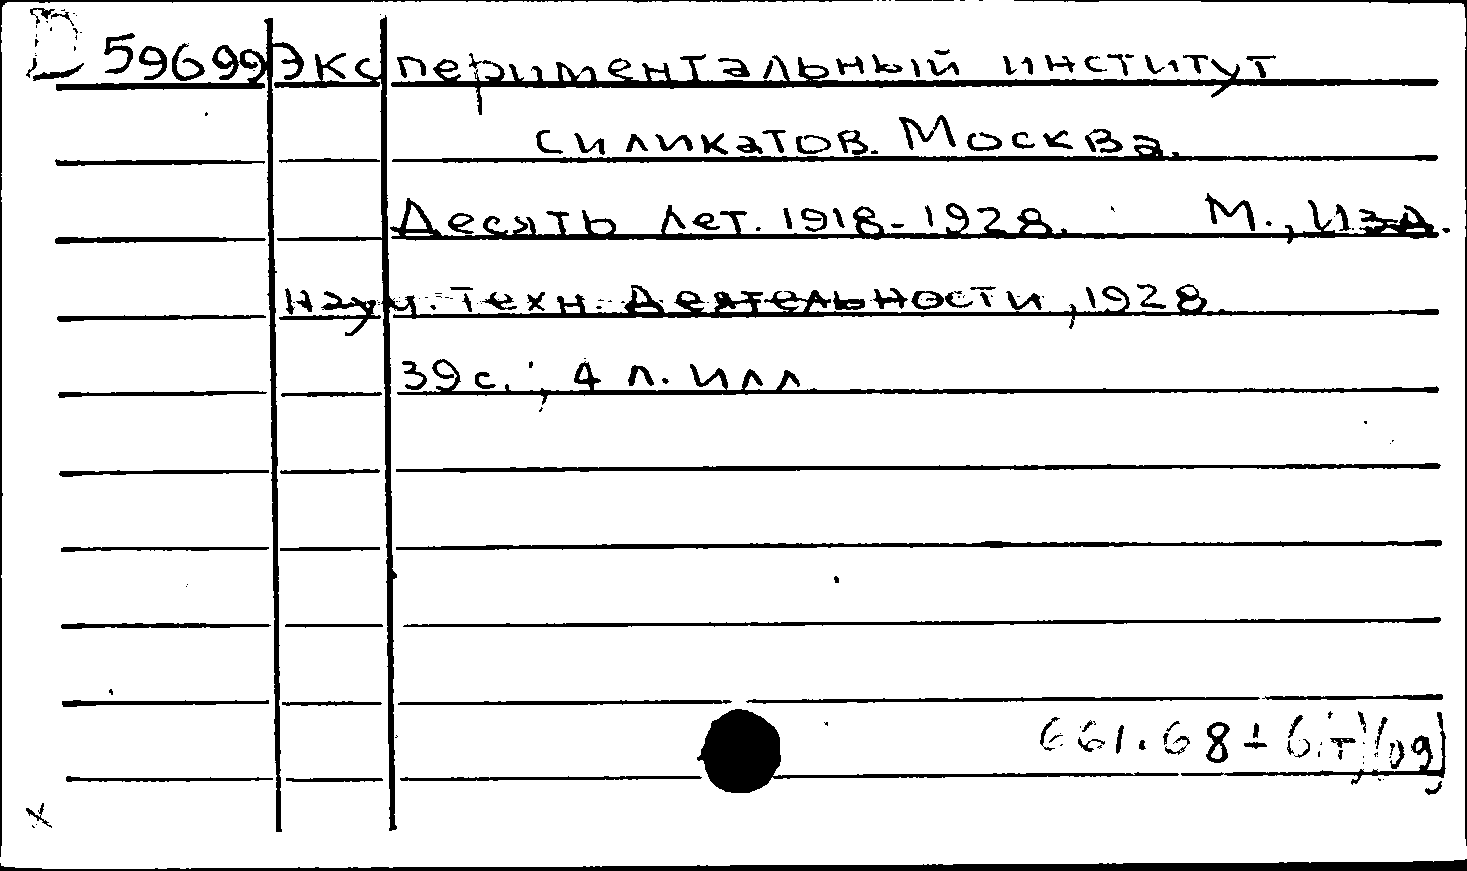 D 59699 Экспериментальный институт
силикатов. Москва.
Десять лет. 1918-1928. М., Изд.
науч. техн. деятельности, 1928.
39 с.; 4 л. илл.
661.68
x